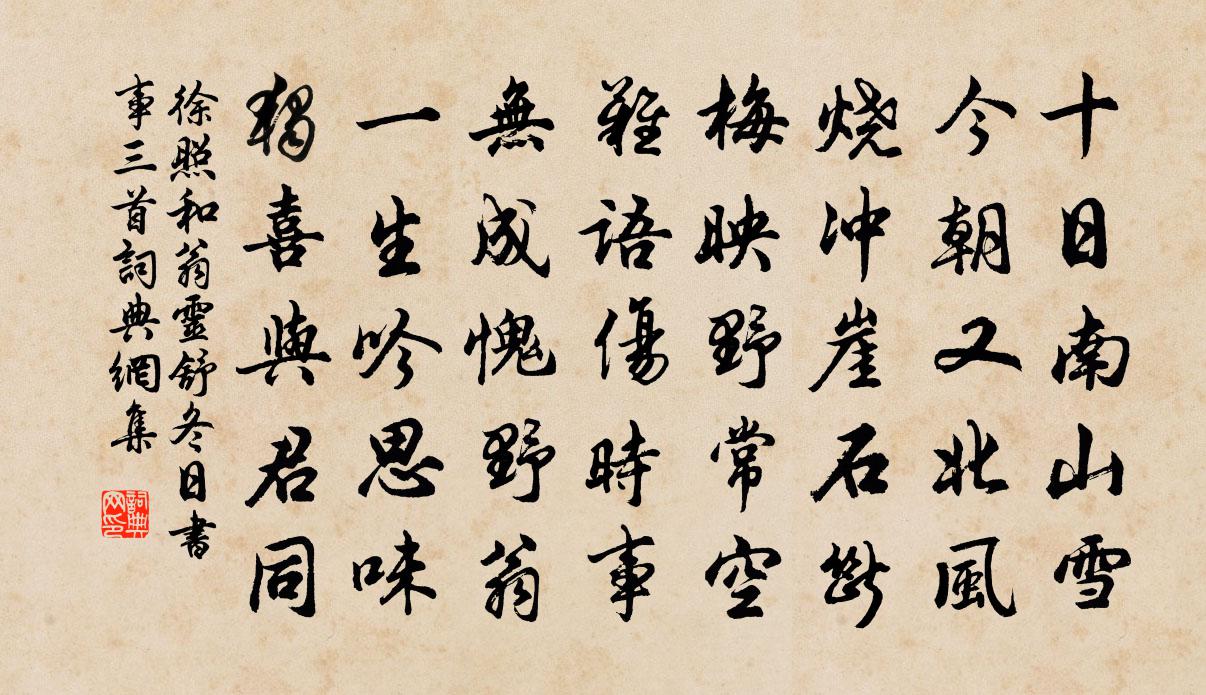 十日南山雪
今朝又北風
燒冲崖石斷
梅映野常空
難語傷時事
無成愧野翁
一生吟思味
獨喜與君同
徐照和翁靈舒冬日書
事三首詞典網集
詞典
网印